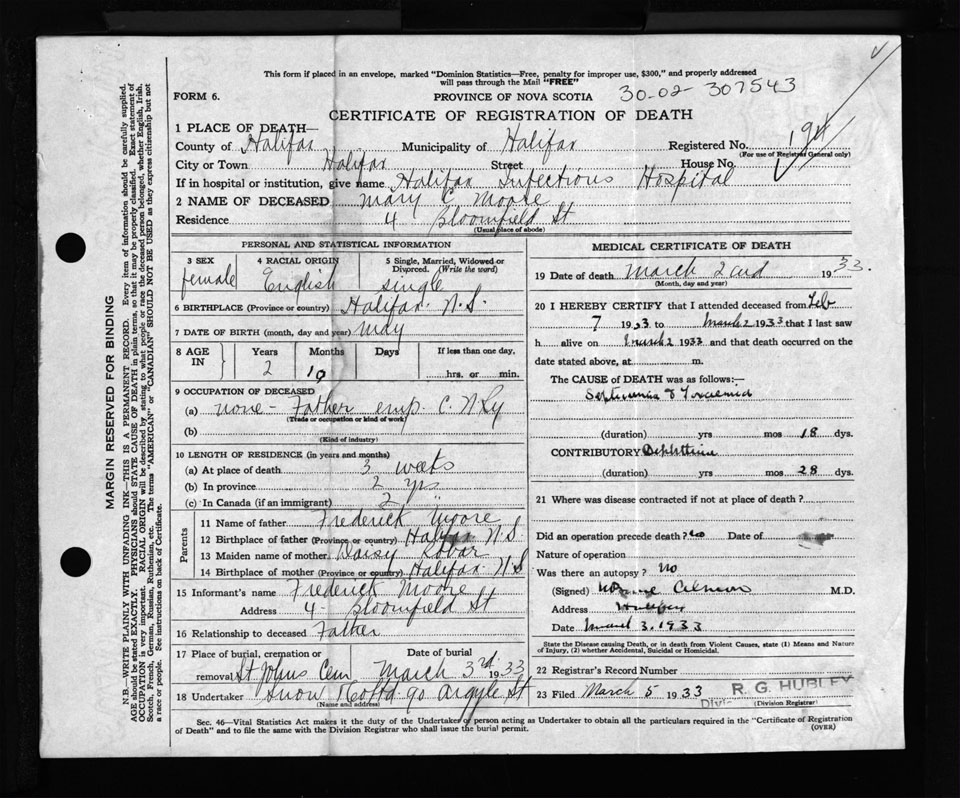 This form if placed in an envelope, marked "Dominion Statistics—Free, penalty for improper use, $300," and properly addressed
will pass through the Mail "FREE"
FORM 6.
PROVINCE OF NOVA SCOTIA
30-02- 307543
CERTIFICATE OF REGISTRATION OF DEATH
1 PLACE OF DEATH—
County of Halifax Municipality of Halifax Registered No. 194
(For use of Registrar General only)
City or Town Halifax Street House No.
If in hospital or institution, give name Halifax Infectious Hospital
2 NAME OF DECEASED Mary C. Moore
Residence 4 Bloomfield St
(Usual place of abode)
PERSONAL AND STATISTICAL INFORMATION
3 SEX female
4 RACIAL ORIGIN English
5 Single, Married, Widowed or Divorced. (Write the word) single
6 BIRTHPLACE (Province or country) Halifax. N.S.
7 DATE OF BIRTH (month, day and year) May
8 AGE IN Years 2 Months 10 Days If less than one day, hrs. or min.
9 OCCUPATION OF DECEASED
(a) none - Father emp. C. N Ry
(Trade or occupation or kind of work)
(b)
(Kind of industry)
10 LENGTH OF RESIDENCE (in years and months)
(a) At place of death 3 weeks
(b) In province 2 yrs
(c) In Canada (if an immigrant) 2 "
Parents
11 Name of father Frederick Moore
12 Birthplace of father (Province or country) Halifax N.S.
13 Maiden name of mother Daisy
14 Birthplace of mother (Province or country) Halifax. N.S
15 Informant's name Frederick Moore
Address 4 - Bloomfield St
16 Relationship to deceased Father
17 Place of burial, cremation or removal St Johns Cem
Date of burial March 3rd 1933
18 Undertaker Snow & Co Ltd 90 Argyle St
(Name and address)
MEDICAL CERTIFICATE OF DEATH
19 Date of death March 2nd 1933.
(Month, day and year)
20 I HEREBY CERTIFY that I attended deceased from Feb
7 1933 to March 2 1933 that I last saw
h alive on March 2 1933 and that death occurred on the
date stated above, at m.
The CAUSE of DEATH was as follows:—
Septicemia & Toxaemia
(duration) yrs mos 18 dys.
CONTRIBUTORY Diphtheria
(duration) yrs mos 28 dys.
21 Where was disease contracted if not at place of death?
Did an operation precede death? no Date of
Nature of operation
Was there an autopsy? no
(Signed) M.D.
Address Halifax
Date March 3. 1933
State the Disease causing Death, or in death from Violent Causes, state (1) Means and Nature
of Injury, (2) whether Accidental, Suicidal or Homicidal.
22 Registrar's Record Number
23 Filed March 5 1933 R. G. HUBLEY
(Division Registrar)
Sec. 46—Vital Statistics Act makes it the duty of the Undertaker or person acting as Undertaker to obtain all the particulars required in the "Certificate of Registration
of Death" and to file the same with the Division Registrar who shall issue the burial permit.
(OVER)
MARGIN RESERVED FOR BINDING
N.B.—WRITE PLAINLY WITH UNFADING INK—THIS IS A PERMANENT RECORD. Every item of information should be carefully supplied.
AGE should be stated EXACTLY. PHYSICIANS should STATE CAUSE OF DEATH in plain terms, so that it may be properly classified. Exact statement of
OCCUPATION is very important. RACIAL ORIGIN will be described by stating to what people or race the deceased person belonged, whether English, Irish,
Scotch, French, German, Russian, Ruthenian, etc. The terms "AMERICAN" or "CANADIAN" SHOULD NOT BE USED as they express citizenship but not
a race or people. See instructions on back of Certificate.